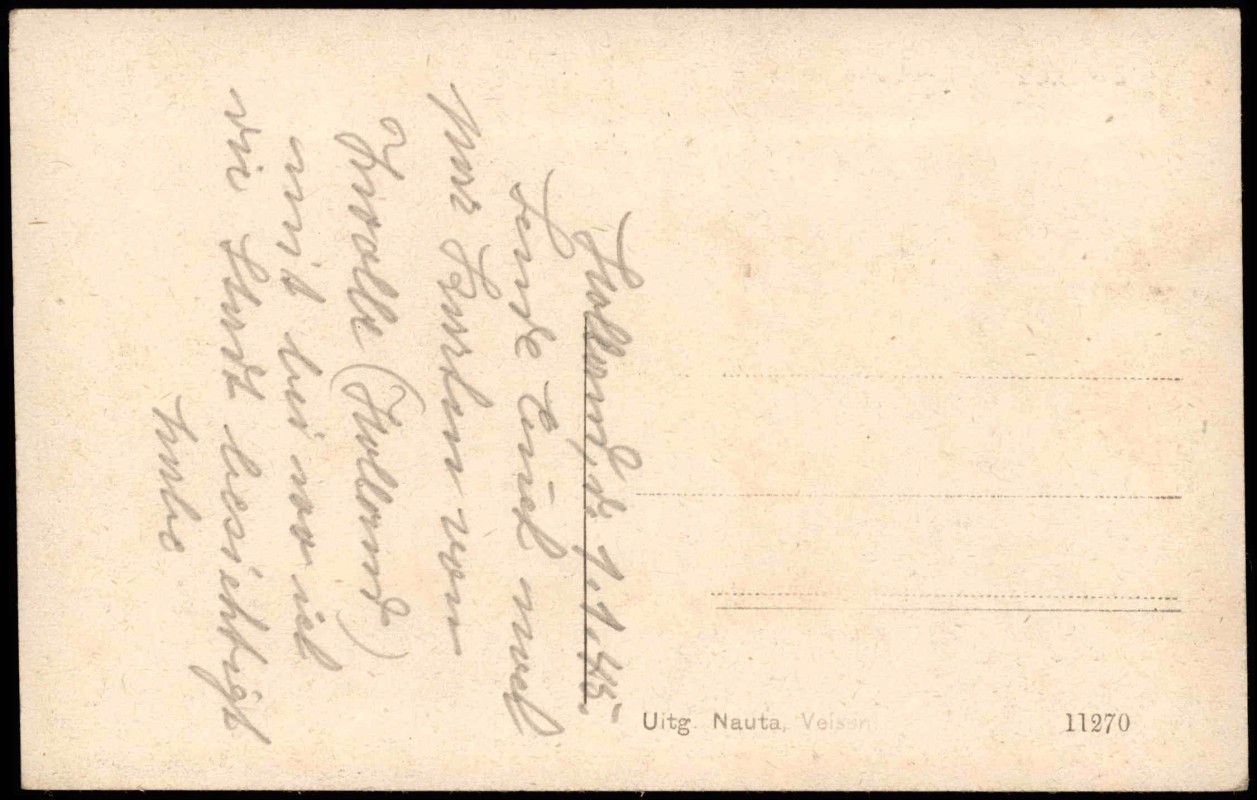 Holland, d. 1.1.45.
Sende Euch noch
paar Karten von
Zwolle (Holland)
und bei wo ich
die Stadt besichtigt
habe
Uitg. Nauta, Velsen
11270